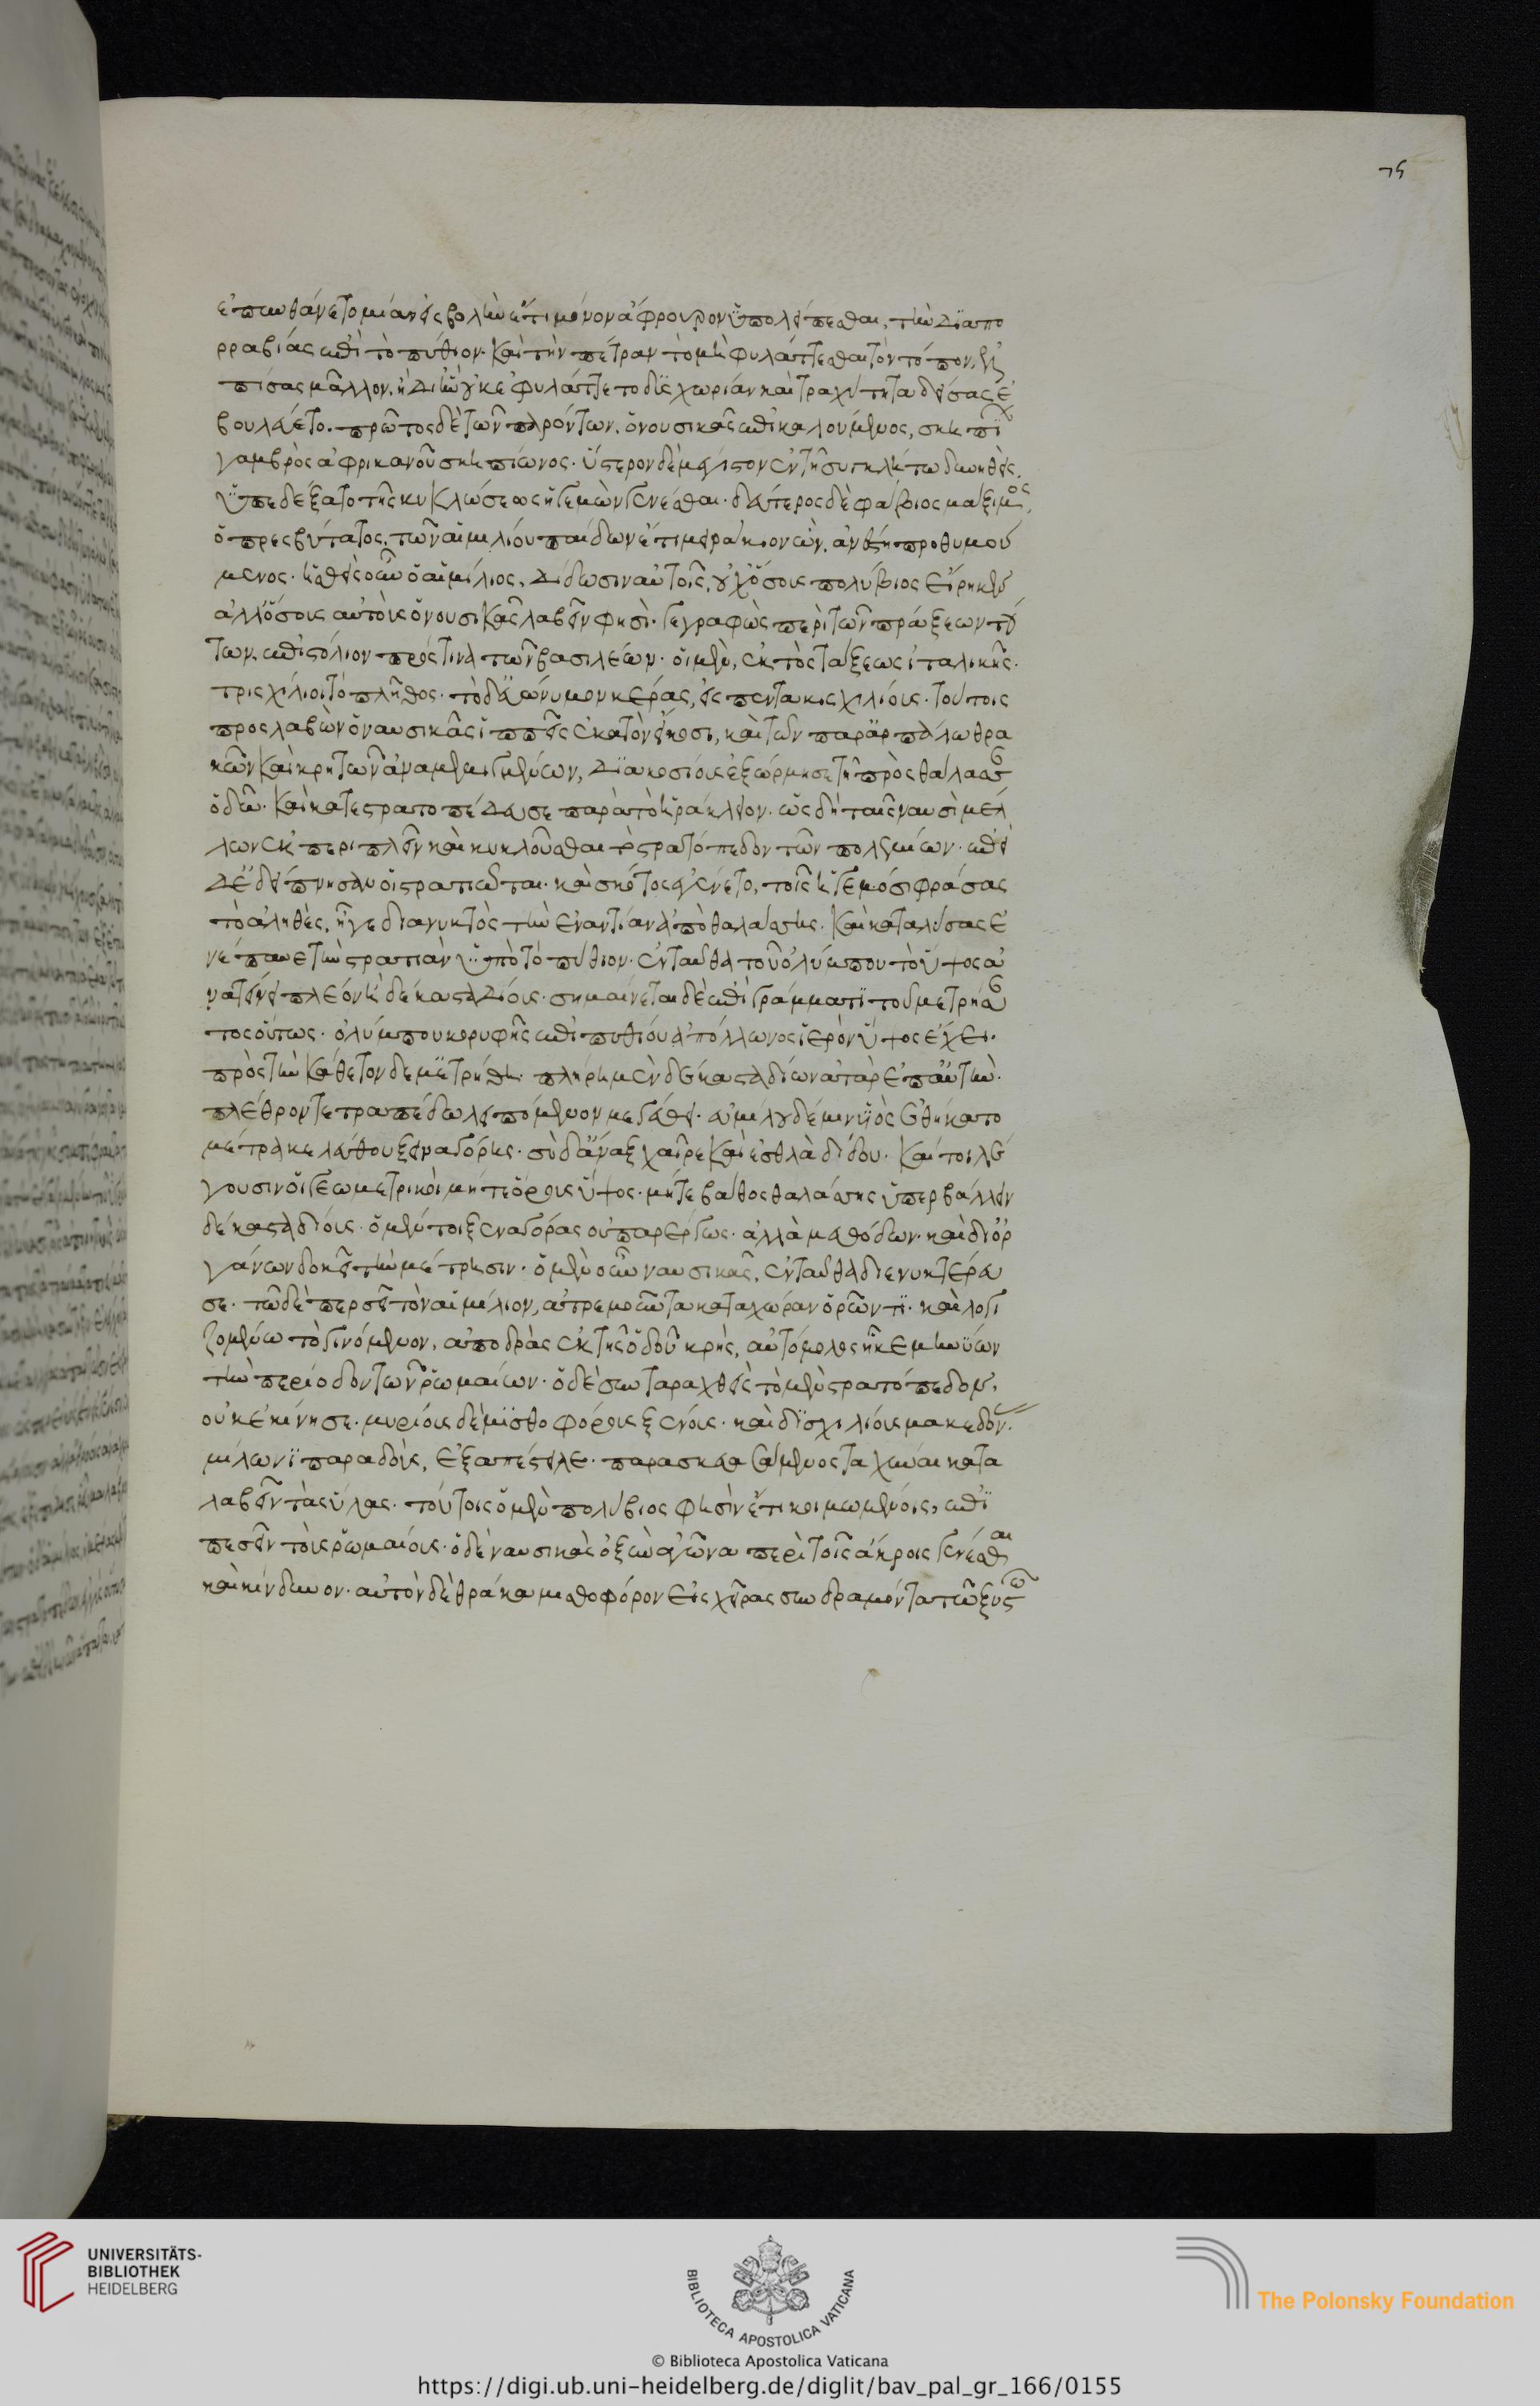 75
ἐπυνθάνετο μίαν εἰσβολὴν ἔτι μόνον ἄφρουρον ὑπολείπεσθαι, τὴν διὰ πε
ρραβίας ἐπὶ τὸ πύθιον. καὶ τὴν πέτραν τὸ μὴ φυλάττεσθαι τὸν τόπον, ἐλ
πίσας μᾶλλον, ἢ δι' ἣν οὐκ ἐφυλάττετο δυσχωρίαν καὶ τραχύτητα δείσας ἐ
βουλεύετο. πρῶτος δὲ τῶν παρόντων, ὁ νουσικᾶς ἐπικαλούμενος, σκηπί
γαμβρὸς ἀφρικανοῦ σκηπίωνος. ὕστερον δὲ μέγιστον ἐν τῇ συγκλήτω δυνηθεὶς.
ὑπεδέξατο τῆς κυκλώσεως ἡγεμὼν γενέσθαι. δεύτερος δὲ φάβιος μάξιμος,
ὁ πρεσβύτατος, τῶν αἰμιλίου παίδων ἔτι μειράκιον ὢν, ἀνέστη προθυμού
μενος. ἡσθεὶς οὖν ὁ αἰμίλιος, δίδωσιν αὐτοῖς, οὐχ ὅσοις πολύβιος εἴρηκεν
ἀλλ' ὅσους αὐτὸς ὁ νουσικᾶς λαβεῖν φησὶ. γεγραφὼς περὶ τῶν πράξεων τού
των. ἐπιστόλιον πρός τινα τῶν βασιλέων. οἱ μὲν, ἐκτὸς τάξεως ἰταλικῆς.
τρισχίλιοι τὸ πλῆθος. τὸ δ' εὐώνυμον κέρας, εἰς πεντακισχιλίοις. τούτοις
προσλαβὼν ὁ ναυσικᾶς ἱππεῖς ἑκατὸν εἴκοσι, καὶ τῶν παρ' ἁρπάλω θρα
κῶν καὶ κρητῶν ἀναμεμιγμένων, διακοσίοις ἐξώρμησε τῇ πρὸς θάλασσ
ὁδῶ. καὶ κατεστρατοπέδευσε παρὰ τὸ ἡράκλειον. ὡς δὴ ταῖς ναυσὶ μέλ
λων ἐκπεριπλεῖν καὶ κυκλοῦσθαι τὸ στρατόπεδον τῶν πολεμίων. ἐπεὶ
δὲ ἐδείπνησαν οἱ στρατιῶται. καὶ σκότος ἐγένετο, τοῖς ἡγεμόσι φράσας
τὸ ἀληθὲς, ἦγε διανυκτὸς τὴν ἐναντίαν ἀπὸ θαλάσσης. καὶ καταλύσας ἀ
νέπαυε τὴν στρατιὰν ὑπὸ τὸ πύθιον. ἐνταῦθα τοῦ ὀλύμπου τὸ ὕψος ἀ
νατείνει πλέον ἢ δέκα σταδίοις. σημαίνεται δὲ ἐπιγράμματι τοῦ μετρήσαν
τος οὕτως. ὀλύμπου κορυφῆς ἐπὶ πυθίου ἀπόλλωνος ἱερὸν ὕψος ἔχει.
πρὸς τὴν κάθετον δ' ἐμετρήθη. πλήρη μὲν δεκασταδίων αὐτὰρ ἐπ' αὐτὴν.
πλέθρον τετραπέδω λειπόμενον μεγέθει. εὐμήλου δέ μιν υἱὸς ἐθήκατο
μέτρα κελεύθου ξειναγόρης. σὺ δ' ἄναξ χαῖρε καὶ ἐσθλὰ δίδου. καίτοι λέ
γουσιν οἱ γεωμετρικοὶ μήτε ὄρους ὕψος. μήτε βάθος θαλάσσης ὑπερβάλλειν
δέκα σταδίοις. ὁ μέντοι ξεναγόρας οὐ παρέργως. ἀλλὰ μεθόδων. καὶ δι' ὀρ
γάνων δοκεῖ τὴν μέτρησιν. ὁ μὲν οὖν ναυσικᾶς, ἐνταῦθα διενυκτέρευ
σε. τῶ δὲ περσεῖ τὸν αἰμίλιον, ἀτρεμοῦντα κατὰ χώραν ὁρῶντι. καὶ λογι
ζομένω τὸ γινόμενον, ἀποδρὰς ἐκ τῆς ὁδοῦ κρὴς, αὐτόμολος ἧκε μηνύων
τὴν περίοδον τῶν ῥωμαίων. ὁ δὲ συνταραχθεὶς τὸ μὲν στρατόπεδον,
οὐκ ἐκίνησε. μυρίοις δὲ μισθοφόρους ξένοις. καὶ δισχιλίοις μακεδόν.
μίλωνι παραδοὺς, ἐξαπέστειλε. παρακελευσάμενος ταχῦναι κατα
λαβεῖν τὰς ὑ. τούτοις ὁ μὲν πολύβιος φησὶν ἔτι κοιμωμένοις, ἐπι
πεσεῖν τοῖς ῥωμαίοις. ὁ δὲ ναυσικᾶς ὀξεῖν ἀγῶνα περὶ τοῖς ἄκροις γενέσθαι
καὶ κίνδυνον. αὐτὸν δὲ θράκα μισθοφόρον εἰς χεῖρας συνδραμόντα τῶ ξυστῶ
UNIVERSITÄTS-
BIBLIOTHEK
HEIDELBERG
BIBLIOTECA APOSTOLICA VATICANA
The Polonsky Foundation
© Biblioteca Apostolica Vaticana
https://digi.ub.uni-heidelberg.de/diglit/bav_pal_gr_166/0155